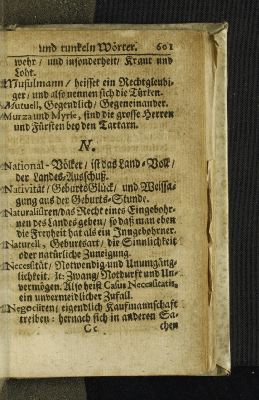 und tunkeln Wörter. 601
wehr / und insonderheit / Kraut und
Loht.
Musulmann / heisset ein Rechtgleubi-
ger / und also nennen sich die Türken.
Mutuell, Gegendlich / Gegeneinander.
Murza und Myrse, sind die grosse Herren
und Fürsten bey den Tartarn.
N.
National-Völker / ist das Land-Volk /
der Landes-Ausschuß.
Nativität / Geburts Glück / und Weissa-
gung aus der Geburts-Stunde.
Naturalisiren / das Recht eines Eingebohr-
nen des Landes geben / so daß man eben
die Freyheit hat als ein Inngebohrner.
Naturell, Geburtsart / die Sinnlichkeit
oder natürliche Zuneigung.
Necessität / Notwendig und Unumgäng-
lichkeit. It: Zwang / Notdurft und Un-
vermögen. Also heist Casus Necessitatis,
ein unvermeidlicher Zufall.
Negociiren / eigendlich Kaufmannschaft
treiben: hernach sich in anderen Sa-
Cc chen